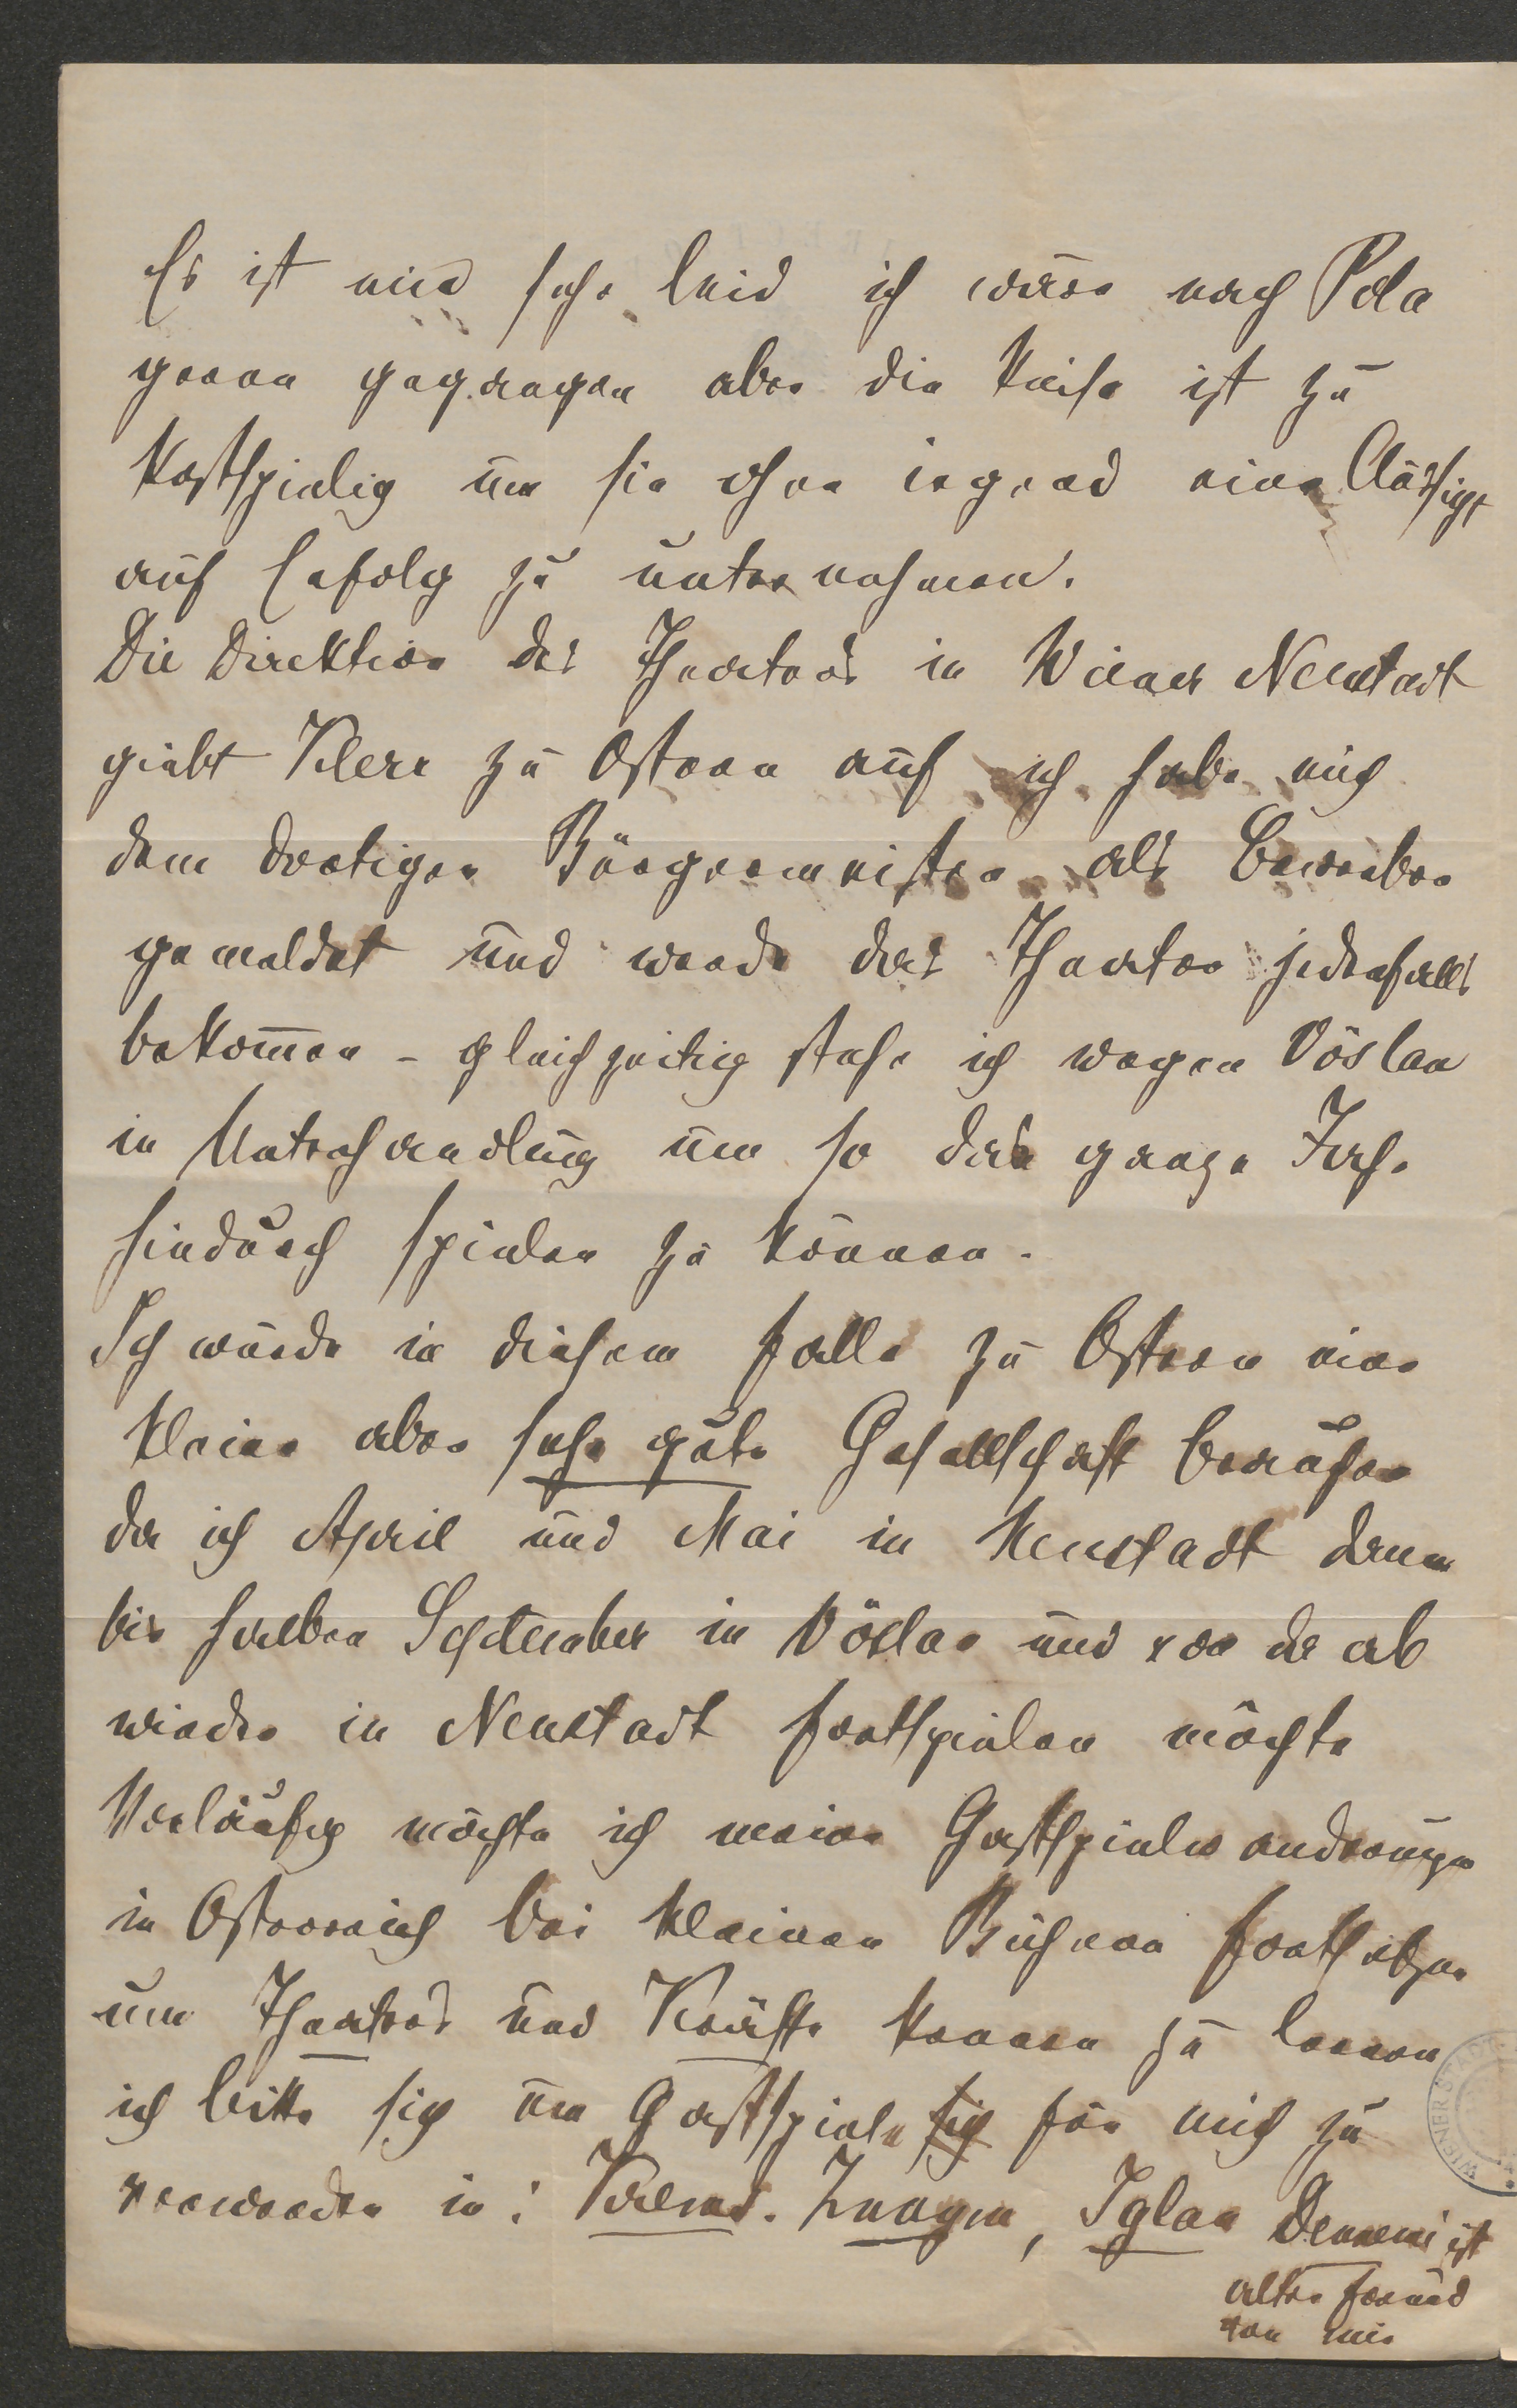 Es ist mir sehr leid ich wäre nach Pola
gerne gegangen aber die Reise ist zu
kostspielig um sie ohne irgend eine Aussicht
auf Erfolg zu unternehmen.
Die Direktion des Theaters in Wiener Neustadt
giebt Klerr zu Ostern auf ich habe mich
dem dortigen Bürgermeister als Bewerber
gemeldet und werde das Theater jedenfalls
bekom̅en - gleichzeitig stehe ich wegen Vöslau
in Unterhandlung um so das ganze Jahr
hindurch spielen zu können.
Ich würde in diesem Falle zu Ostern eine
kleine aber sehr gute Gesellschaft brauchen
da ich April und Mai in Neustadt dann
bis halben September in Vöslau und von da ab
wieder in Neustadt fortspielen möchte
Vorläufig möchte ich meine Gastspielwanderungen
in Österreich bei kleinen Bühnen fortsetzen
um Theater und Kräfte kennen zu lernen
ich bitte sich um Gastspiele sich für mich zu
verwenden in: Krems. Znaym, Iglau ist
alter Freund
von mir
WIENER STADT